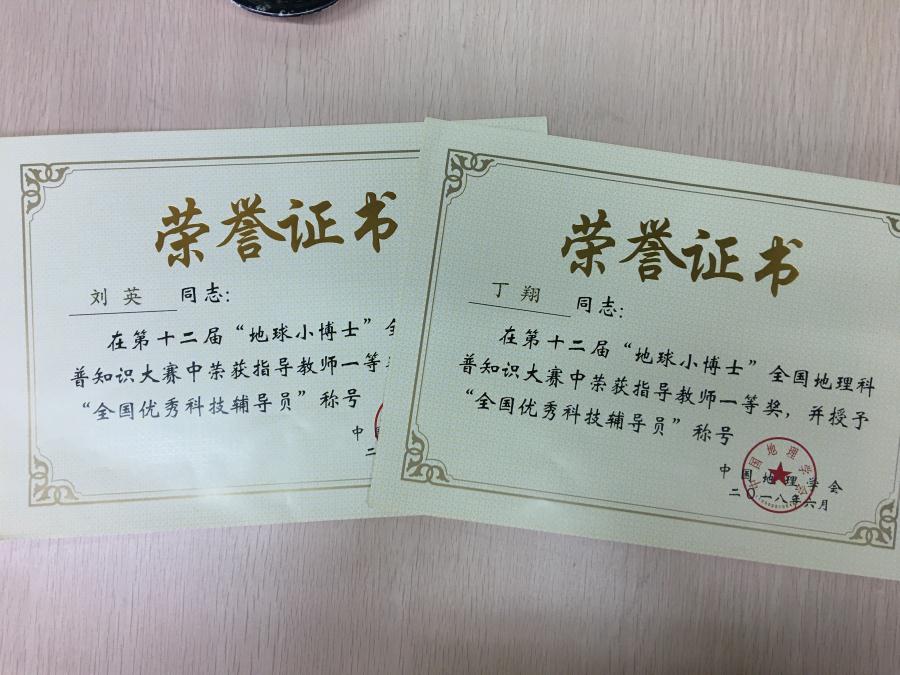 荣誉证书
刘英 同志：
在第十二届“地球小博士”全
普知识大赛中荣获指导教师一等
“全国优秀科技辅导员”称号
中
二
荣誉证书
丁翔 同志：
在第十二届“地球小博士”全国地理科
普知识大赛中荣获指导教师一等奖，并授予
“全国优秀科技辅导员”称号
中国地理学会
二〇一八年六月
中国地理学会